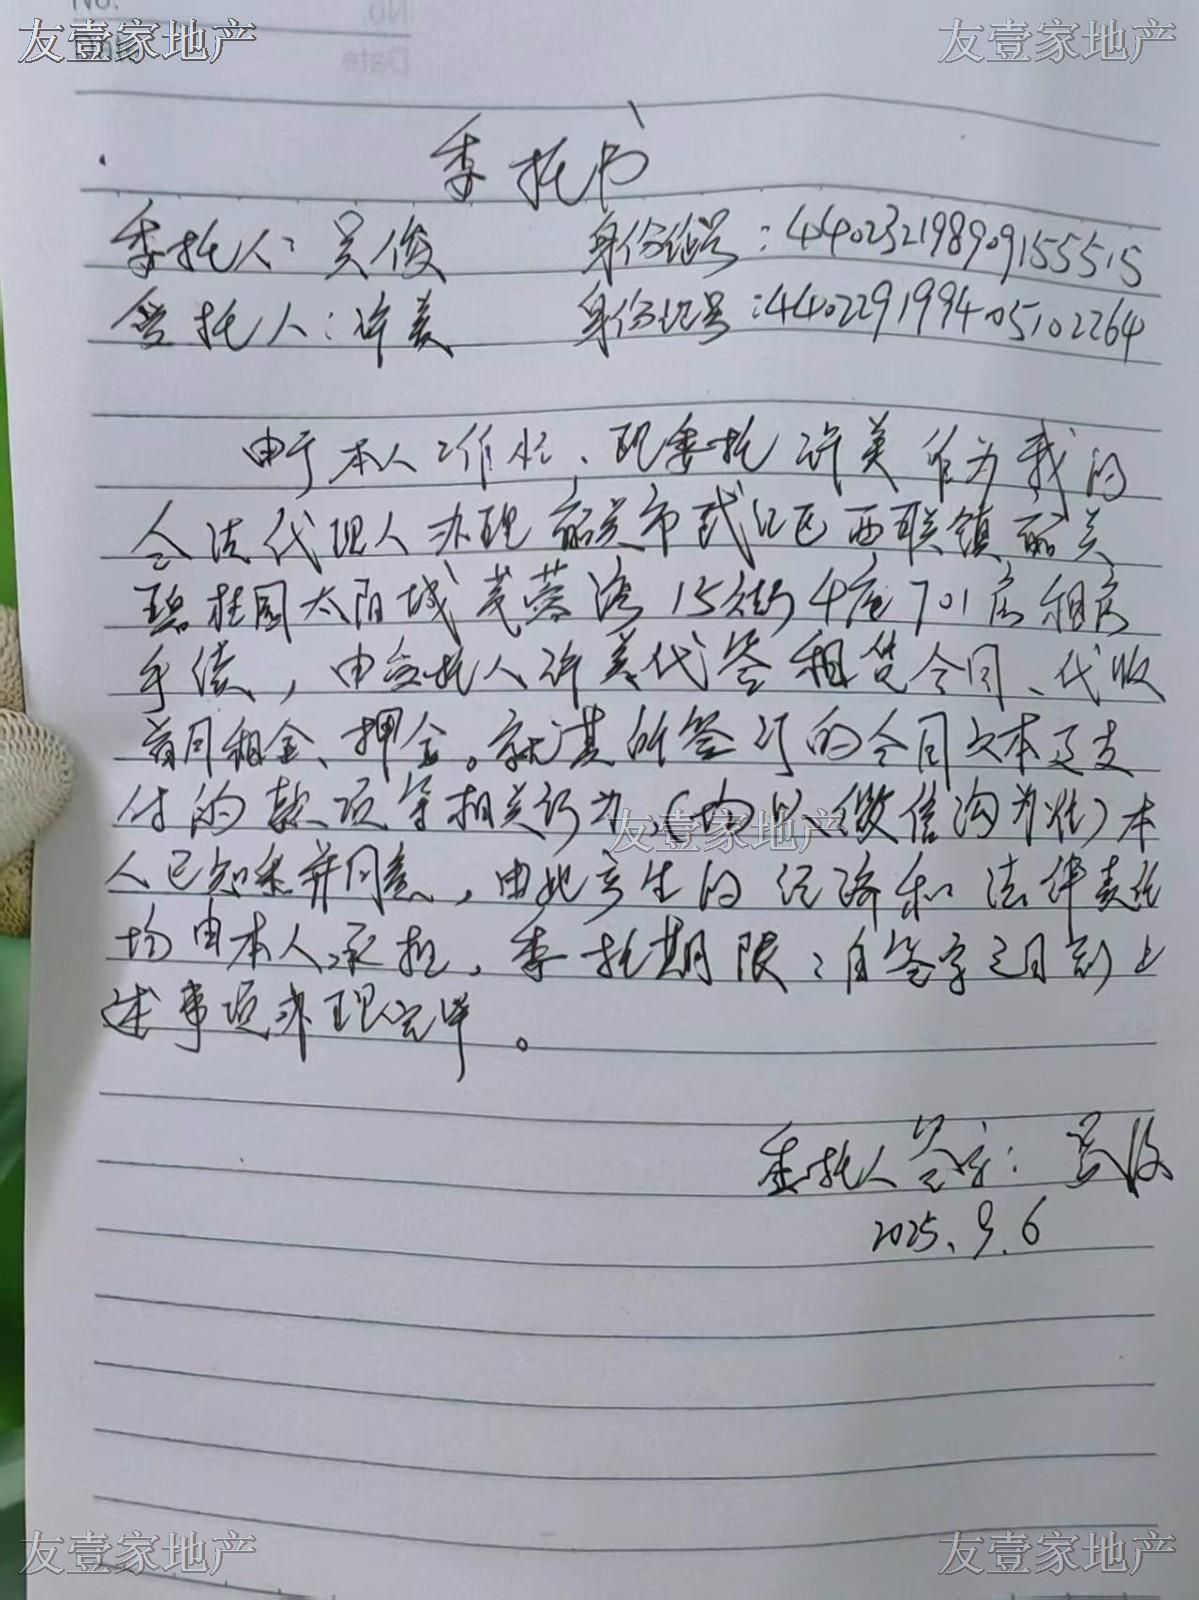 友壹家地产
友壹家地产
No.
Date
委托书
委托人：吴俊 身份证号：440232198909155515
受托人：许美 身份证号：440229199405102264
由于本人工作忙、现委托许美作为我的
合法代理人办理韶关市武江区西联镇韶关
碧桂园太阳城芙蓉湾15街4座701房租房
手续，由受托人许美代签租赁合同、代收
首月租金、押金。就其所签订的合同文本及支
付的款项等相关行为，(均以微信沟为准)本
友壹家地产
人已知悉并同意，由此产生的经济和法律责任
均由本人承担，委托期限：自签字之日到上
述事项办理完毕。
委托人签字：吴俊
2025.9.6
友壹家地产
友壹家地产